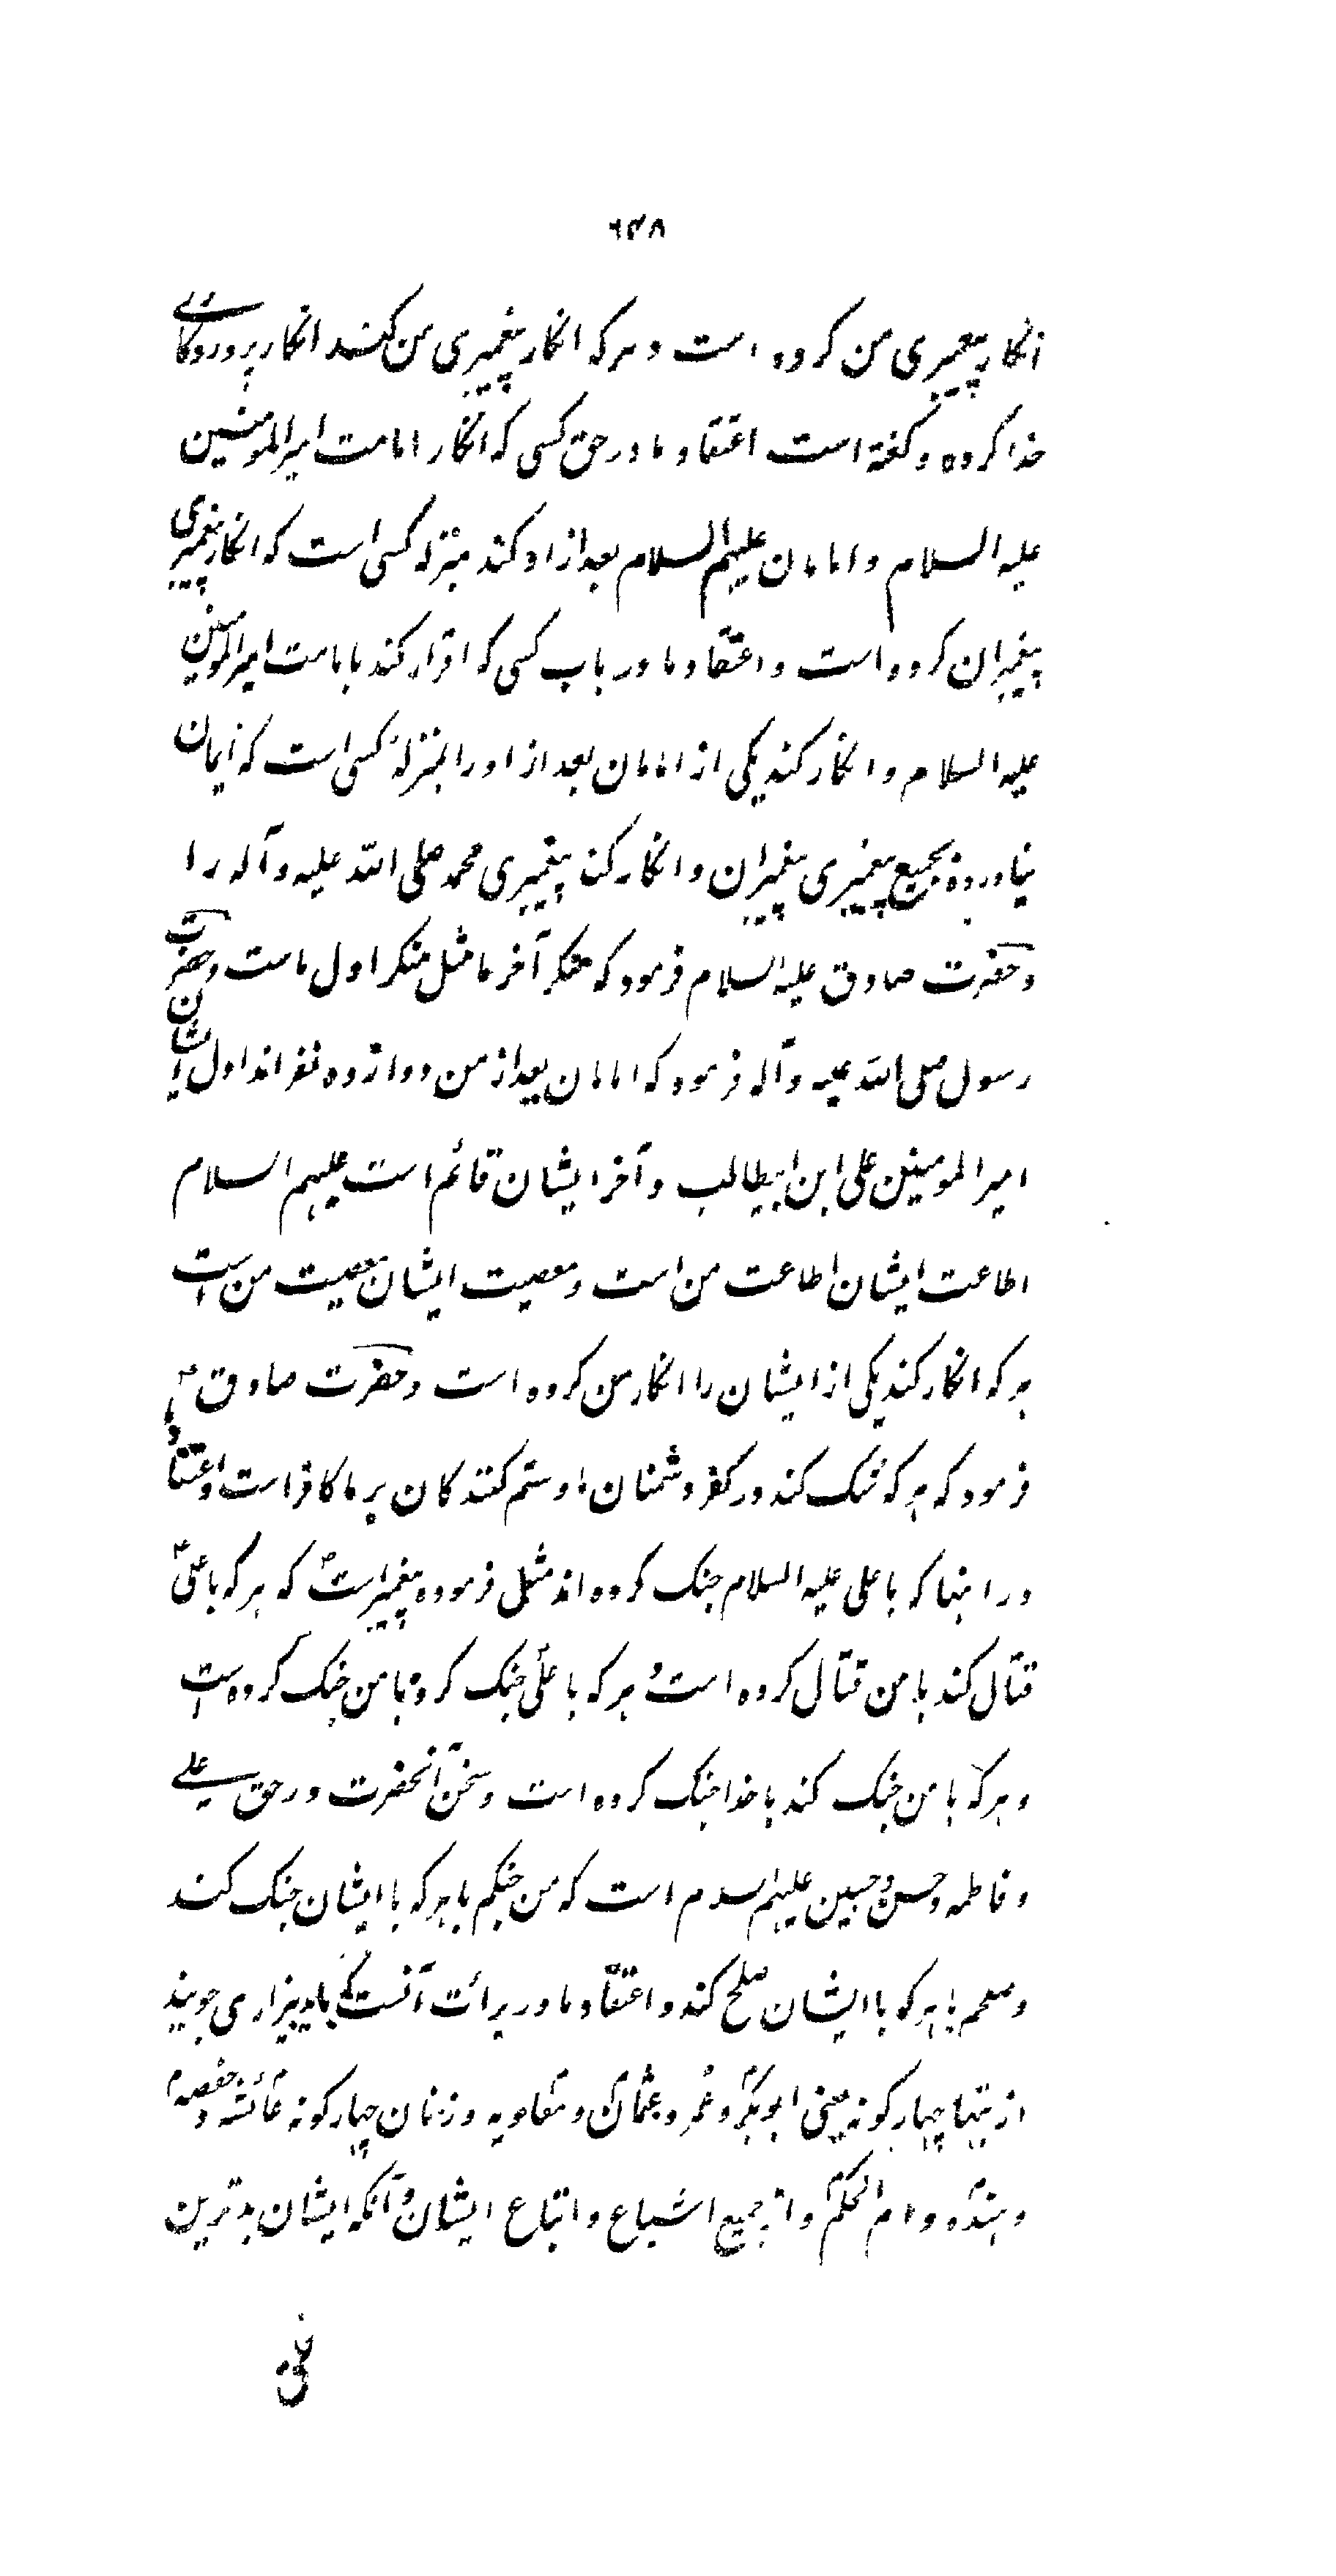 ۶۴۸
انکار پیغمبری من کرده است و هر که انکار پیغمبری من کند انکار پروردکاری
خدا کرده و گفته است اعتقاد ما در حق کسی که انکار امامت امیرالمومنین
علیه السلام و امامان علیهم السلام بعد از او کند بمنزله کسی است که انکار پیغمبری
پیغمبران کرده است و اعتقاد ما در باب کسی که اقرار کند بامامت امیرالمومنین
علیه السلام و انکار کند یکی از امامان بعد از او را بمنزلهٔ کسی است که ایمان
بیاورده بجمیع پیغمبری پیغمبران و انکار کند پیغمبری محمد صلی الله علیه و آله را
و حضرت صادق علیه السلام فرمود که منکر آخر ما مثل منکر اول ماست و حضرت
رسول صلی الله علیه و آله فرمود که امامان بعد از من دوازده نفر اند اول ایشان
امیر المومنین علی ابن ابیطالب و آخر ایشان قائم است علیهم السلام
اطاعت ایشان اطاعت من است و معصیت ایشان معصیت من است
هر که انکار کند یکی از ایشان را انکار من کرده است و حضرت صادق ع
فرمود که هر که شک کند در کفر دشمنان ما و ستم کنندکان بر ما کافر است و اعتقاد ما
در اینها که با علی علیه السلام جنک کرده اند مثل فرموده پیغمبر است ص که هر که با علی ع
قتال کند با من قتال کرده است و هر که با علی جنک کرده با من جنک کرده است
و هر که با من جنک کند با خدا جنک کرده است و سخن آنحضرت در حق علی
و فاطمه و حسن و حسین علیهم السلام است که من جنکم با هر که با ایشان جنک کند
و صلحم با هر که با ایشان صلح کند و اعتقاد ما در برائت آنست که باید بیزاری جویند
از بتها چهار کونه یعنی ابوبکر و عمر و عثمان و معاویه و زنان چهار کونه عائشه و حفصه
و هنده و ام الحکم و از جمیع اشیاع و اتباع ایشان و آنکه ایشان بدترین